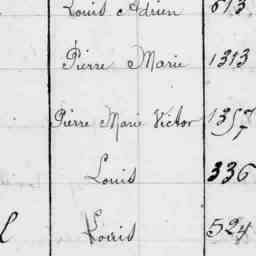 Louis Adrien 613
Pierre Marie 1313
Pierre Marie Victor 1357
Louis 336
Louis 524